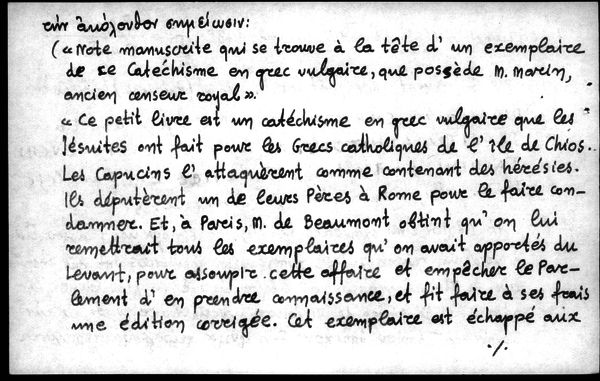 τὴν ἀκόλουθον σημείωσιν:
(« Note manuscrite qui se trouve à la tête d' un exemplaire
de ce Catéchisme en grec vulgaire, que possède M. Marin,
ancien censeur royal ».
« Ce petit livre est un catéchisme en grec vulgaire que les
Jésuites ont fait pour les Grecs catholiques de l' île de Chios.
Les Capucins l' attaquèrent comme contenant des hérésies.
Ils députèrent un de leurs Pères à Rome pour le faire con-
damner. Et, à Paris, M. de Beaumont obtint qu' on lui
remettrait tous les exemplaires qu' on avait apportés du
Levant, pour assoupir cette affaire et empêcher le Par-
lement d' en prendre connaissance, et fit faire à ses frais
une édition corrigée. Cet exemplaire est échappé aux
·/.